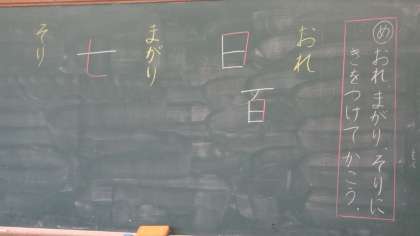 め おれ、まがり、そりに
きをつけてかこう。
おれ
日
百
まがり
七
そり